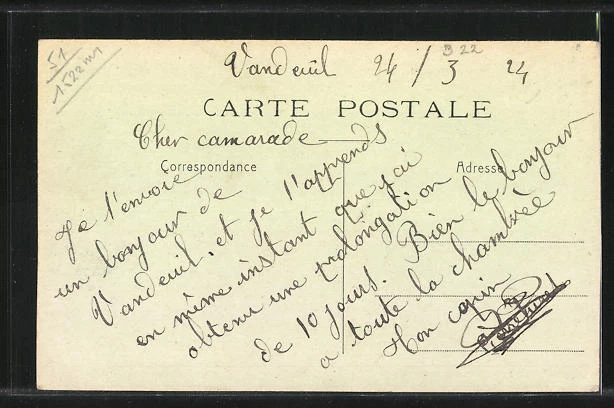 51
1522 mr
B 22
Vandeuil 24/3 24
CARTE POSTALE
Cher camarade
Correspondance
Adresse
Je t'envoie
un bonjour de
Vandeuil. et je t'apprends
en même instant que j'ai
obtenu une prolongation
de 10 jours. Bien le bonjour
a toute la chambrée
Ton copin